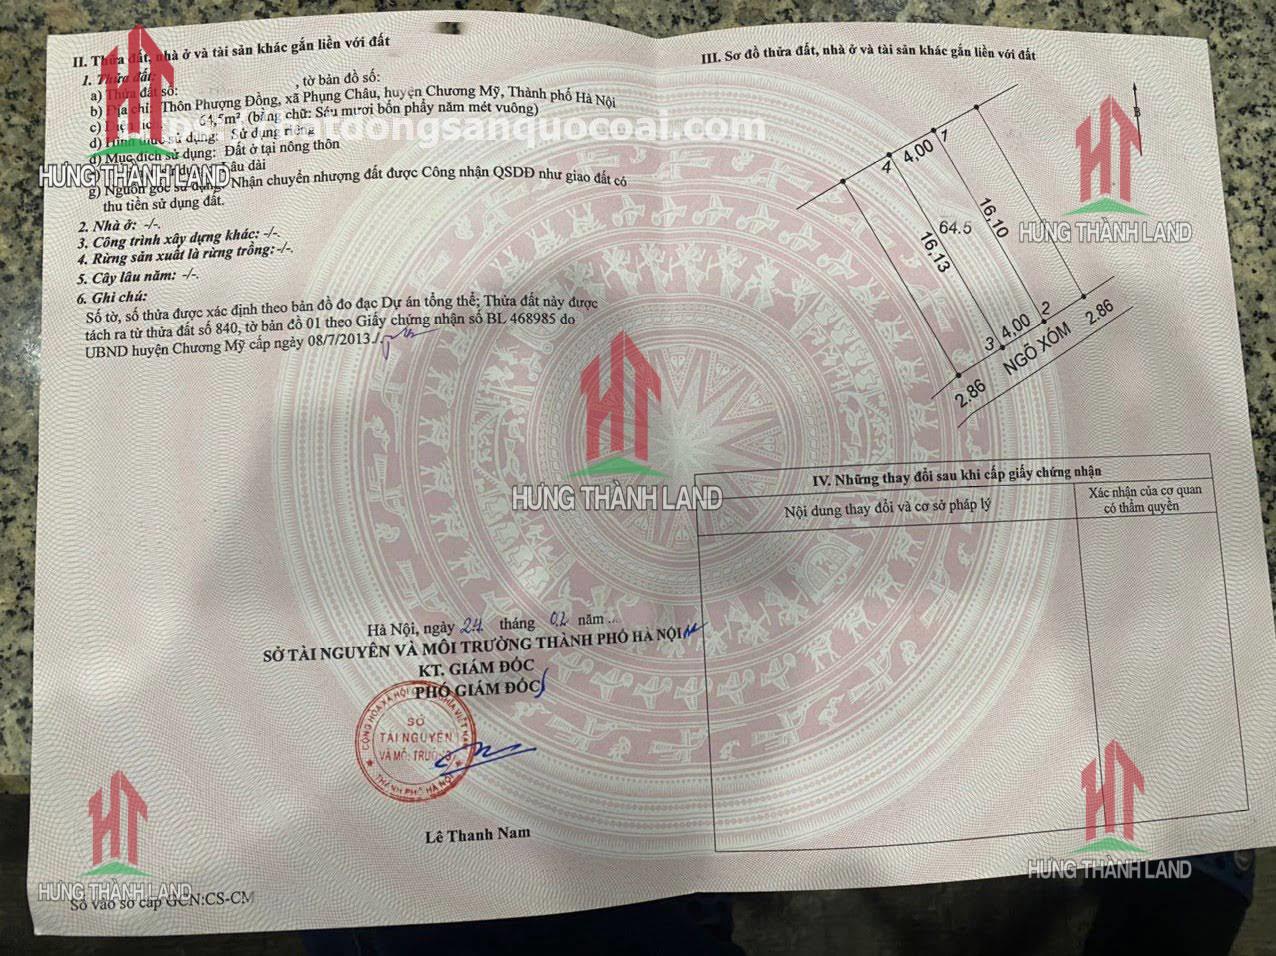 II. Thửa đất, nhà ở và tài sản khác gắn liền với đất
1. Thửa đất:
a) Thửa đất số: , tờ bản đồ số:
b) Địa chỉ: Thôn Phượng Đồng, xã Phụng Châu, huyện Chương Mỹ, Thành phố Hà Nội
c) 64,5m² (bằng chữ: Sáu mươi bốn phẩy năm mét vuông)
d) Hình thức sử dụng: Sử dụng riêng
đ) Mục đích sử dụng: Đất ở tại nông thôn
sử dụng: Lâu dài
g) Nguồn gốc sử dụng: Nhận chuyển nhượng đất được Công nhận QSDĐ như giao đất có
thu tiền sử dụng đất.
2. Nhà ở: -/-.
3. Công trình xây dựng khác: -/-.
4. Rừng sản xuất là rừng trồng: -/-.
5. Cây lâu năm: -/-.
6. Ghi chú:
Số tờ, số thửa được xác định theo bản đồ đo đạc Dự án tổng thể; Thửa đất này được
tách ra từ thửa đất số 840, tờ bản đồ 01 theo Giấy chứng nhận số BL 468985 do
UBND huyện Chương Mỹ cấp ngày 08/7/2013./.
Hà Nội, ngày 24 tháng 02 năm ...
SỞ TÀI NGUYÊN VÀ MÔI TRƯỜNG THÀNH PHỐ HÀ NỘI
KT. GIÁM ĐỐC
PHÓ GIÁM ĐỐC
SỞ
TÀI NGUYÊN
VÀ MÔI TRƯỜNG
THÀNH PHỐ HÀ NỘI
Lê Thanh Nam
Số vào sổ cấp GCN:CS-CM
III. Sơ đồ thửa đất, nhà ở và tài sản khác gắn liền với đất
B
4
4,00
1
16,10
64.5
16,13
3
4,00
2
2.86
NGÕ XÓM
2.86
IV. Những thay đổi sau khi cấp giấy chứng nhận
Nội dung thay đổi và cơ sở pháp lý
Xác nhận của cơ quan
có thẩm quyền
batdongsanquocoai.com
HƯNG THÀNH LAND
HƯNG THÀNH LAND
HƯNG THÀNH LAND
HƯNG THÀNH LAND
HƯNG THÀNH LAND